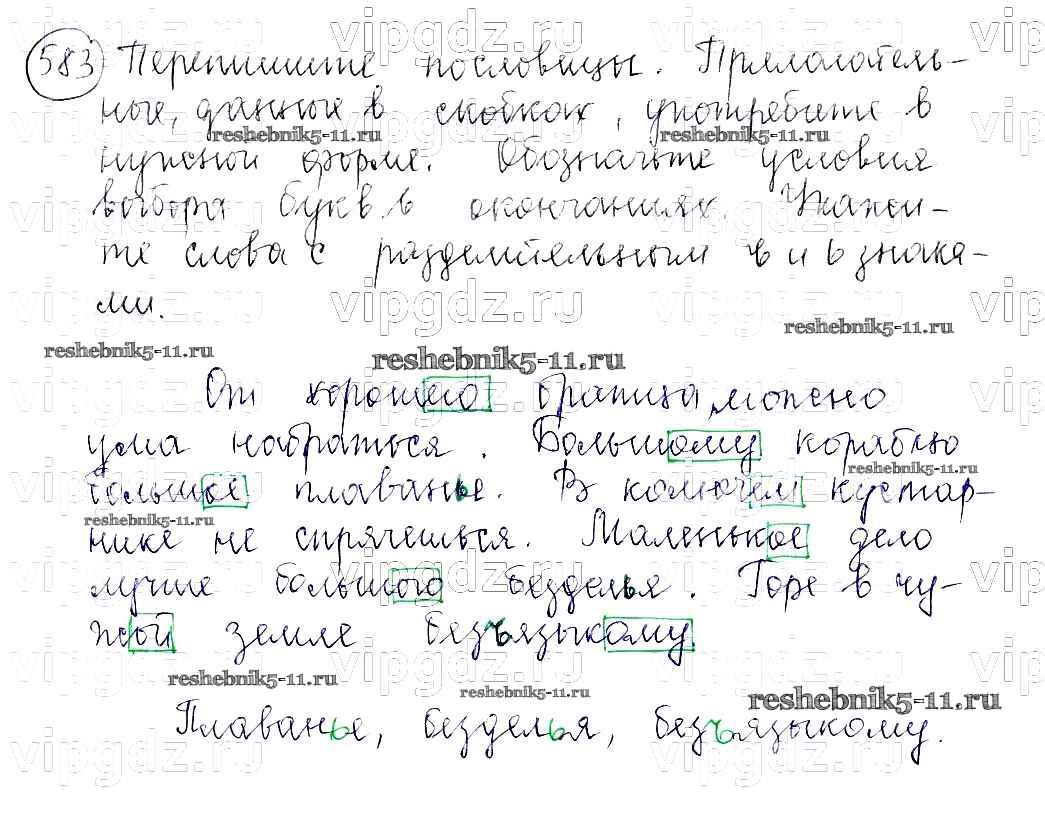 583 Перепишите пословицы. Прилагатель-
ные, данные в скобках, употребите в
нужной форме. Обозначьте условия
выбора букв в окончаниях. Укажи-
те слова с разделительным ъ и ь знака-
ми.
От хорошего братца можно
ума набраться. Большому кораблю
большое плаванье. В колючем кустар-
нике не спрячешься. Маленькое дело
лучше большого безделья. Горе в чу-
жой земле безъязыкому.
Плаванье, безделья, безъязыкому.
vipgdz.ru
reshebnik5-11.ru